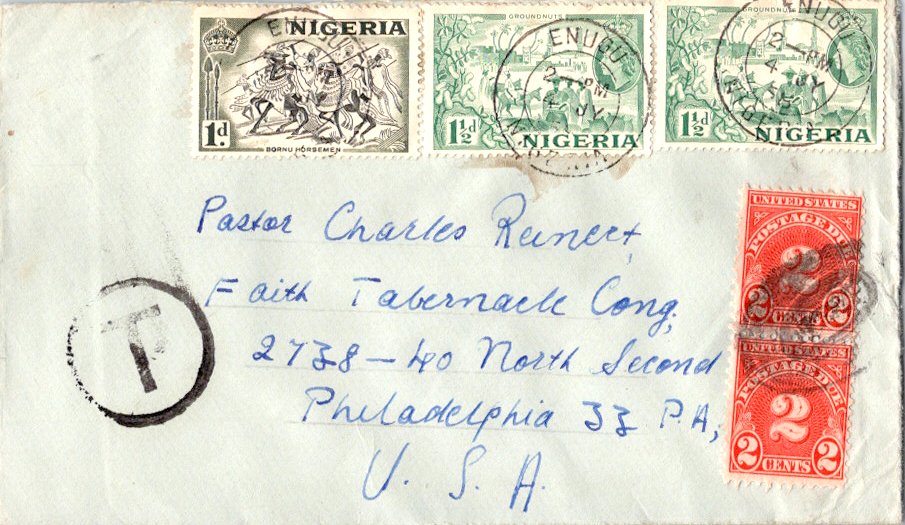 NIGERIA
1d.
BORNU HORSEMEN
ENUGU
GROUNDNUTS
1½d
NIGERIA
ENUGU
2 - PM
4 JY
GROUNDNUTS
1½d
NIGERIA
ENUGU
2 - PM
4 JY
Pastor Charles Reinert,
Faith Tabernacle Cong,
2738-40 North Second
Philadelphia 33 P.A,
U. S. A.
T
UNITED STATES
POSTAGE DUE
2
2 CENTS 2
UNITED STATES
POSTAGE DUE
2
2 CENTS 2